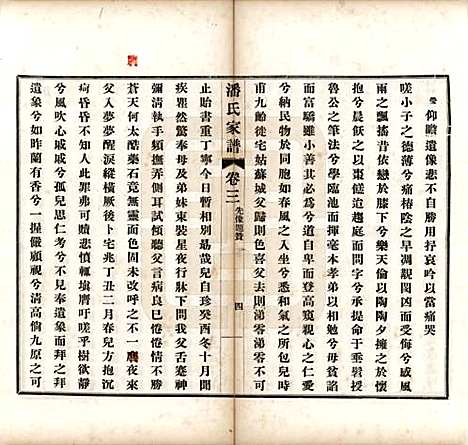 瑩
仰瞻遺像悲不自勝用抒哀吟以當痛哭
嗟小子之德薄兮痛椿陰之早凋覩圖而侮兮感風
雨之飄搖昔依戀於膝下兮樂天倫以陶陶夕於此
抱兮晨於此朝子長跽以承命兮父正色於垂髫授
魯公之筆法兮學臨池而揮毫本孝弟以相勉兮毋貧諂
而富驕雖小善其必爲兮道自契於簞瓢窺長者之仁愛
兮納民物於同胞如春風之入坐兮悉和氣之所包兒甯
甫九齡徙宅姑蘇城父歸則色喜父去則涕零涕零不可
潘氏家譜
卷三
先像題贊
四
止貽書重丁寧今日暫相別勗哉兒自珍癸酉冬十月聞
疾瞿然驚奉母及弟妹束裝星夜行歸則見我父舌蹇神
彌清執手頻撫弄低聲喚乳名父言病良已倦倦猶有情
蒼天何太酷藥石竟無靈面色固未改呼之不一譍夜來
父入夢夢醒淚縱橫厥後卜宅兆丁丑二月春兒方抱沉
疴昏昏不知晨此罪不可贖悲憤輒塡膺吁嗟乎樹欲靜
兮風吹心戚戚兮孤兒思仁考兮不見奉遺象而拜之拜
遺象兮如昨蘭有香兮一握儼顧視兮淸高倘九原之可